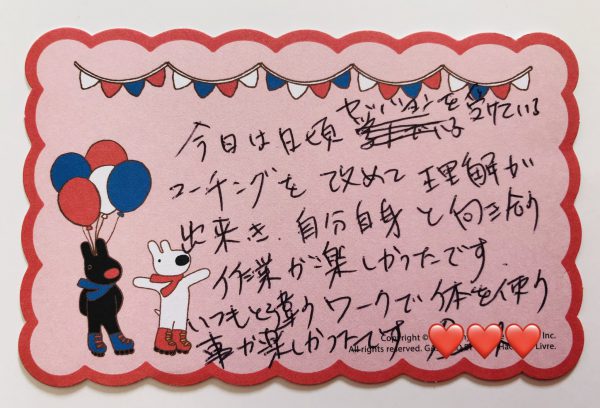 今日は日頃 セッションを受けている
コーチングを改めて理解が
出来き、自分自身と向き合う
作業が楽しかったです。
いつもと違うワークで体を使う
事が楽しかったです
Copyright ©
Inc.
All rights reserved.
Livre.